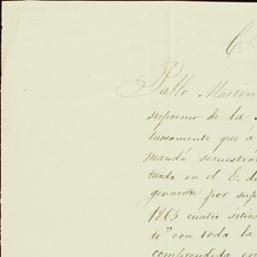 C.
Pablo Martin
supremo de la
tuosamente que á
mandó secuestra
tuada en el E. d
genaron por sup
1865 cuatro sitios
té" con toda la
comprendida en